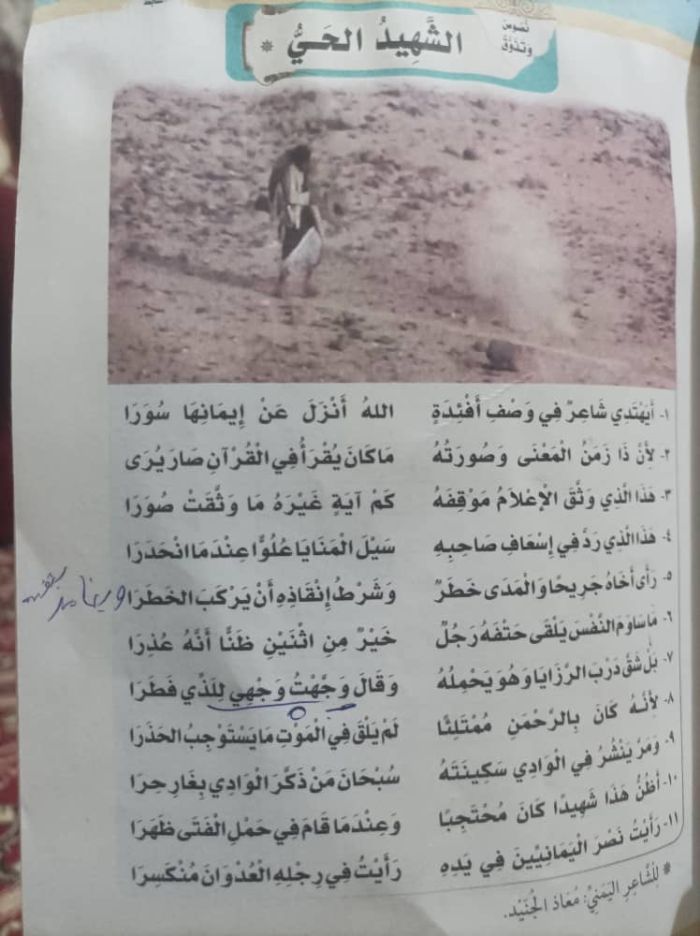 نصوص
وتذوق
الشَّهِيدُ الحَيُّ *
١- أَيَهْتَدِي شَاعِرٌ فِي وَصْفِ أَفْئِدَةٍ اللهُ أَنْزَلَ عَنْ إِيمَانِهَا سُوَرَا
٢- لِأَنَّ ذَا زَمَنُ الْمَعْنَى وَصُورَتُهُ مَا كَانَ يُقْرَأُ فِي الْقُرْآنِ صَارَ يُرَى
٣- هَذَا الَّذِي وَثَّقَ الْإِعْلَامُ مَوْقِفَهُ كَمْ آيَةٍ غَيْرَهُ مَا وَثَّقَتْ صُوَرَا
٤- هَذَا الَّذِي رَدَّ فِي إِسْعَافِ صَاحِبِهِ سَيْلَ الْمَنَايَا عُلُوًّا عِنْدَمَا انْحَدَرَا
٥- رَأَى أَخَاهُ جَرِيحًا وَالْمَدَى خَطَرٌ وَشَرْطُ إِنْقَاذِهِ أَنْ يَرْكَبَ الخَطَرَا
٦- مَا سَاوَمَ النَّفْسَ يَلْقَى حَتْفَهُ رَجُلٌ خَيْرٌ مِنِ اثْنَيْنِ ظَنًّا أَنَّهُ عُذِرَا
٧- بَلْ شَقَّ دَرْبَ الرَّزَايَا وَهُوَ يَحْمِلُهُ وَقَالَ وَجَّهْتُ وَجْهِي لِلَّذِي فَطَرَا
٨- لِأَنَّهُ كَانَ بِالرَّحْمَنِ مُمْتَلِئًا لَمْ يَلْقَ فِي الْمَوْتِ مَا يَسْتَوْجِبُ الحَذَرَا
٩- وَمَرَّ يَنْشُرُ فِي الْوَادِي سَكِينَتَهُ سُبْحَانَ مَنْ ذَكَّرَ الْوَادِي بِغَارِ حِرَا
١٠- أَظُنُّ هَذَا شَهِيدًا كَانَ مُحْتَجِبًا وَعِنْدَمَا قَامَ فِي حَمْلِ الْفَتَى ظَهَرَا
١١- رَأَيْتُ نَصْرَ الْيَمَانِيِّينَ فِي يَدِهِ رَأَيْتُ فِي رِجْلِهِ الْعُدْوَانَ مُنْكَسِرَا
* لِلشَّاعِرِ الْيَمَنِيِّ: مُعَاذ الجُنَيْد.